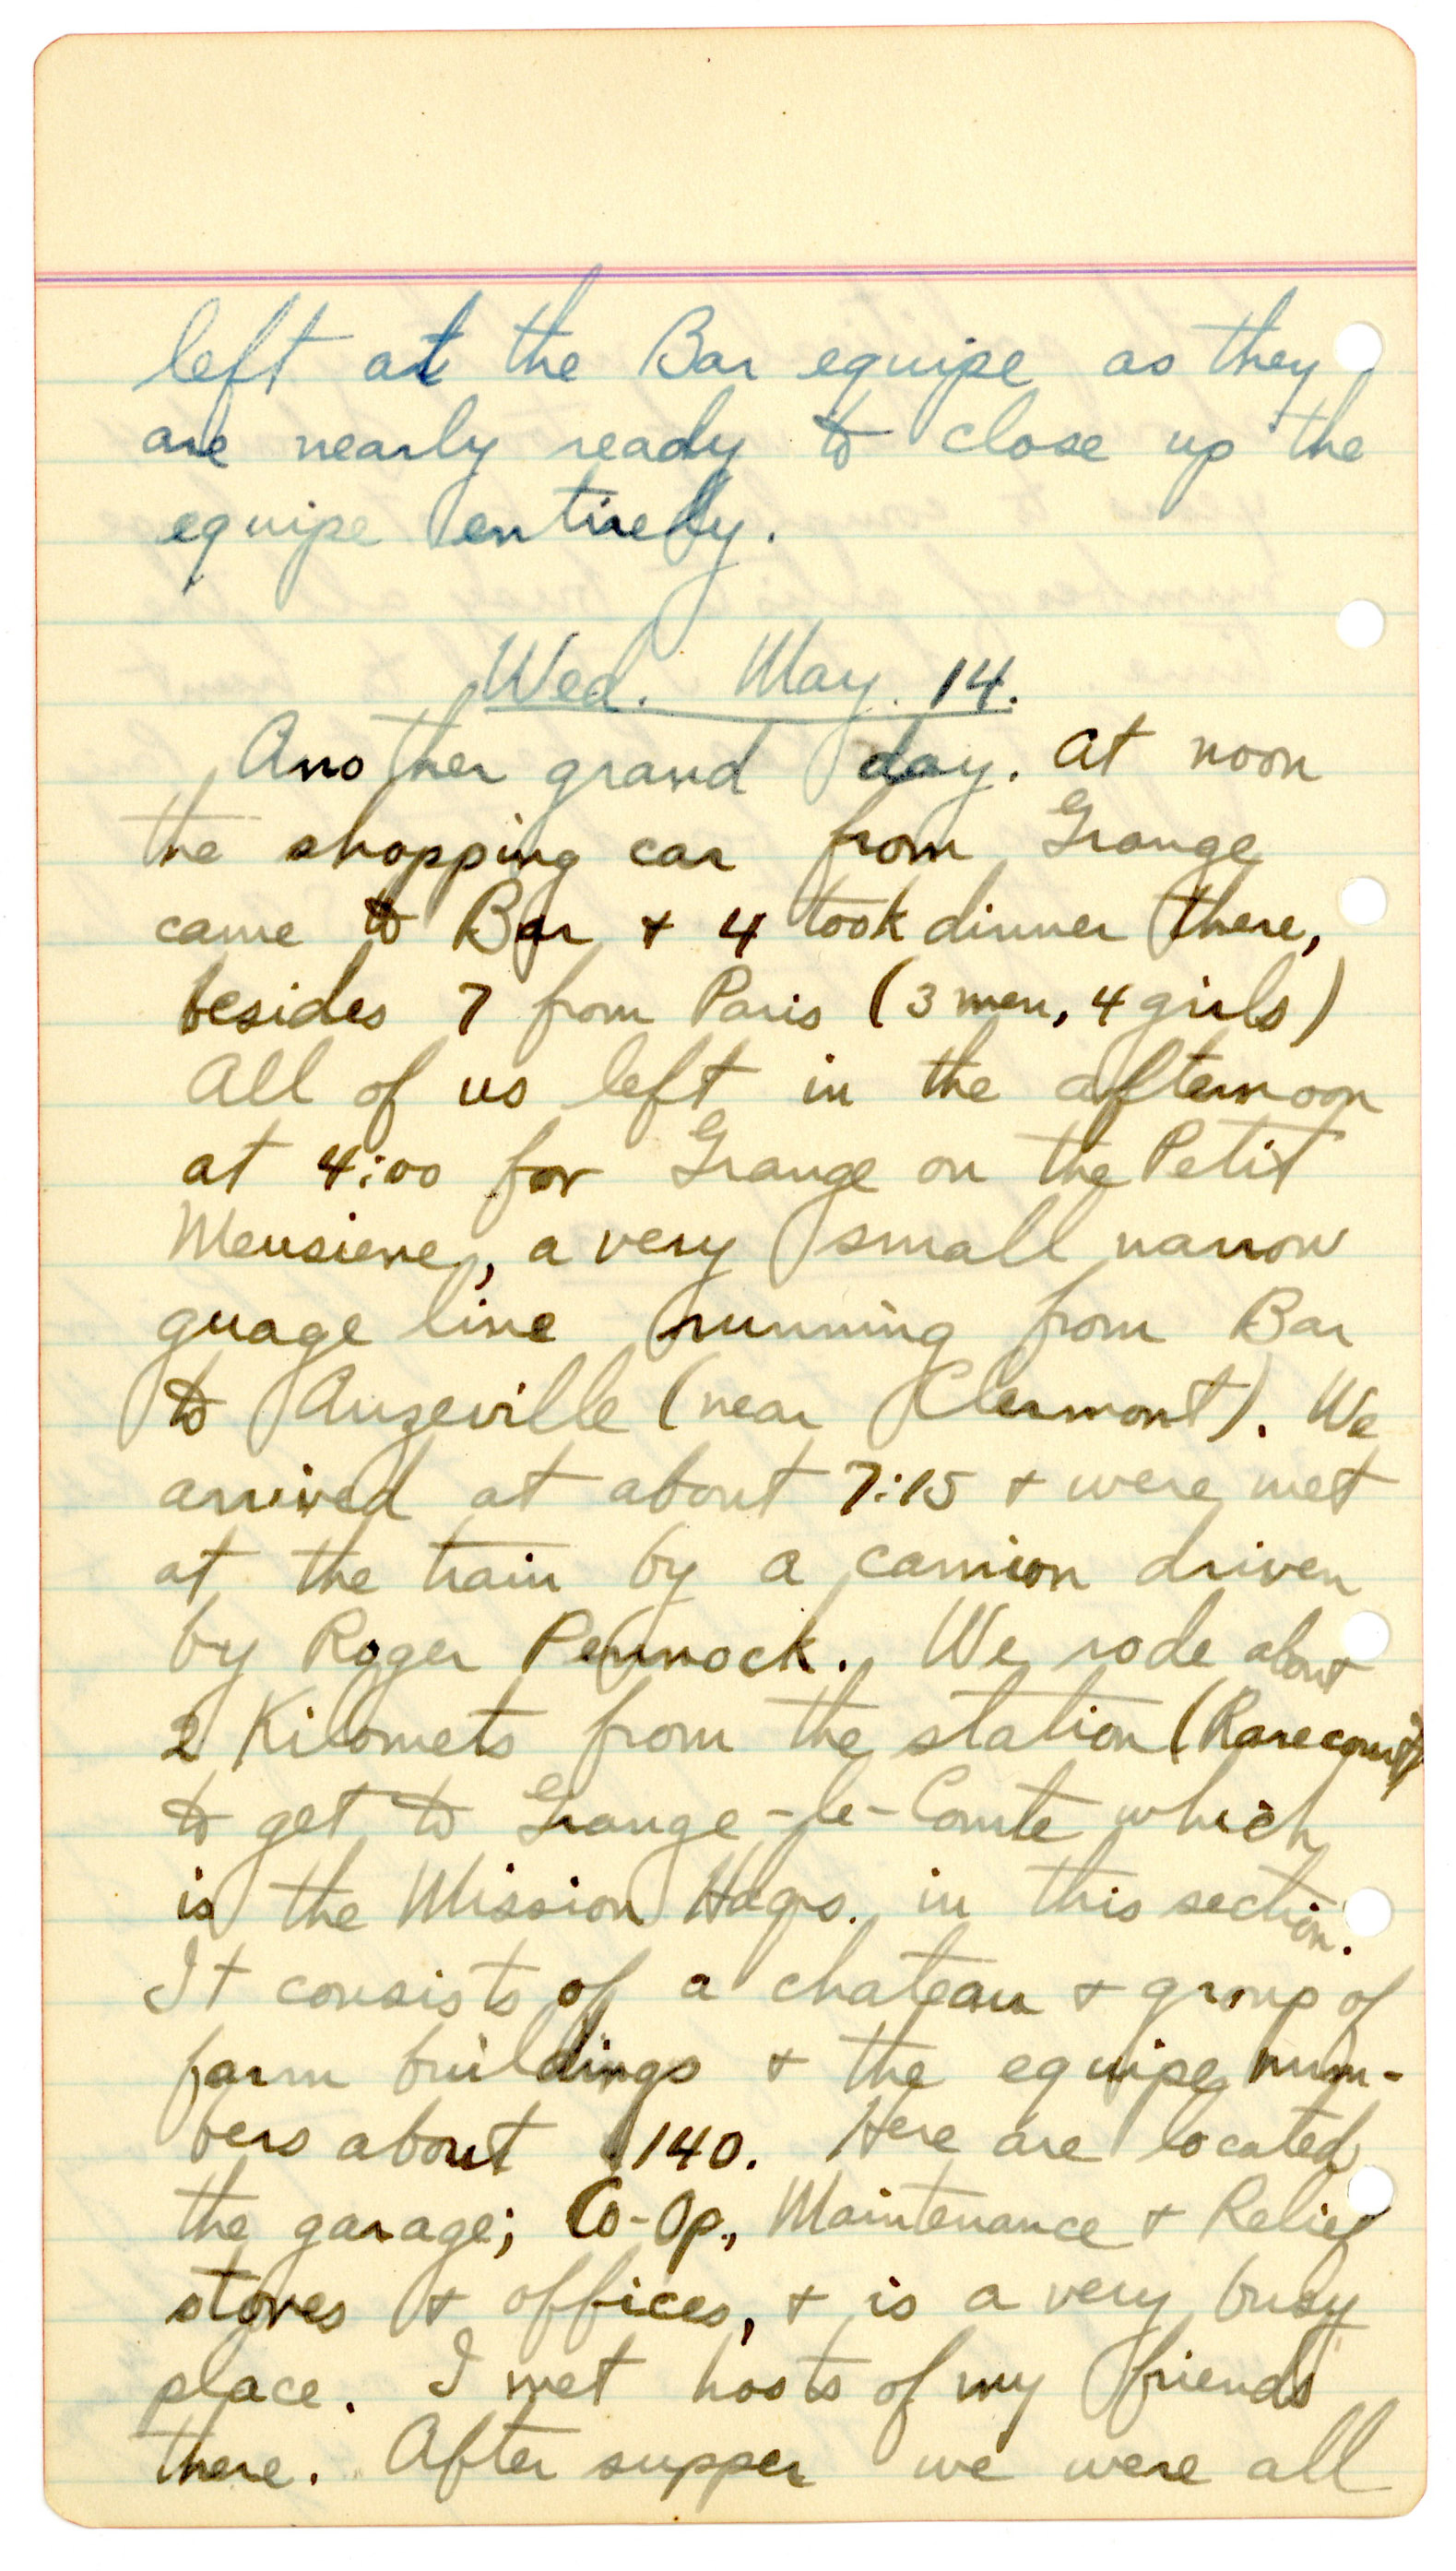 left at the Bar equipe as they
are nearly ready to close up the
equipe entirely.
Wed. May. 14.
Another grand day. At noon
the shopping car from Grange
came to Bar & 4 took dinner there,
besides 7 from Paris (3 men, 4 girls)
All of us left in the afternoon
at 4:00 for Grange on the Petit
Meusiene, a very small narrow
guage line running from Bar
to Auzeville (near Clermont). We
arrived at about 7:15 & were met
at the train by a camion driven
by Roger Pennock. We rode about
2 Kilomets from the station (Rarecourt)
to get to Grange-le-Comte which
is the Mission Hdqrs. in this section.
It consists of a chateau & group of
farm buildings & the equipe num-
bers about 140. Here are located
the garage; Co-Op., Maintenance & Relief
stores & offices, & is a very busy
place. I met hosts of my friends
there. After supper we were all